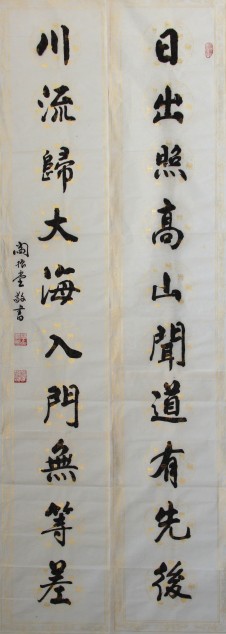 日出照高山聞道有先後
川流歸大海入門無等差